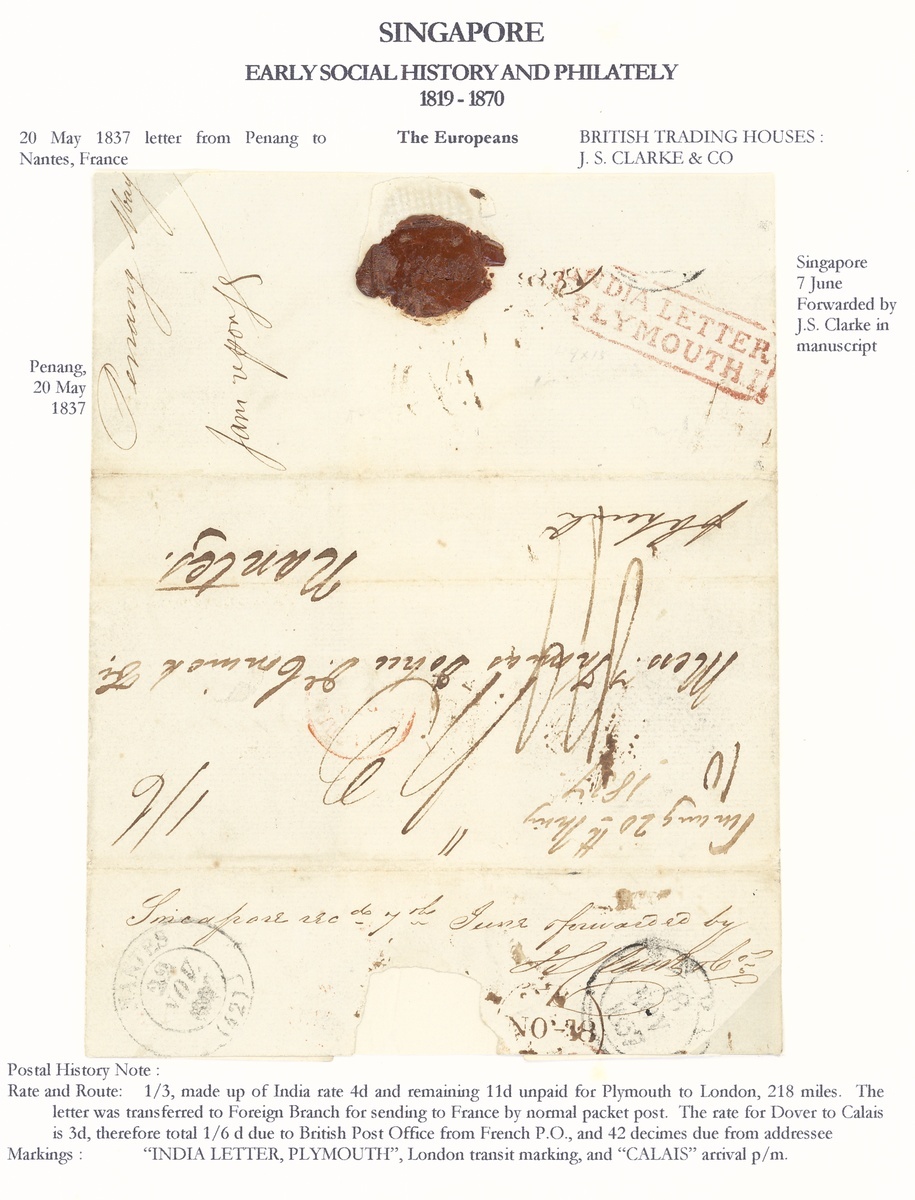 SINGAPORE
EARLY SOCIAL HISTORY AND PHILATELY
1819 - 1870
20 May 1837 letter from Penang to
Nantes, France
The Europeans
BRITISH TRADING HOUSES :
J. S. CLARKE & CO
Singapore
7 June
Forwarded by
J.S. Clarke in
manuscript
Penang,
20 May
1837
Penang May
INDIA LETTER
PLYMOUTH
Nantes.
Mess. Thomas
1/6
10
20th May
1837
Singapore recd 7th June & forwarded by
NANTES
NOV
(42)
NO-18
Postal History Note :
Rate and Route: 1/3, made up of India rate 4d and remaining 11d unpaid for Plymouth to London, 218 miles. The
letter was transferred to Foreign Branch for sending to France by normal packet post. The rate for Dover to Calais
is 3d, therefore total 1/6 d due to British Post Office from French P.O., and 42 decimes due from addressee
Markings : “INDIA LETTER, PLYMOUTH”, London transit marking, and “CALAIS” arrival p/m.